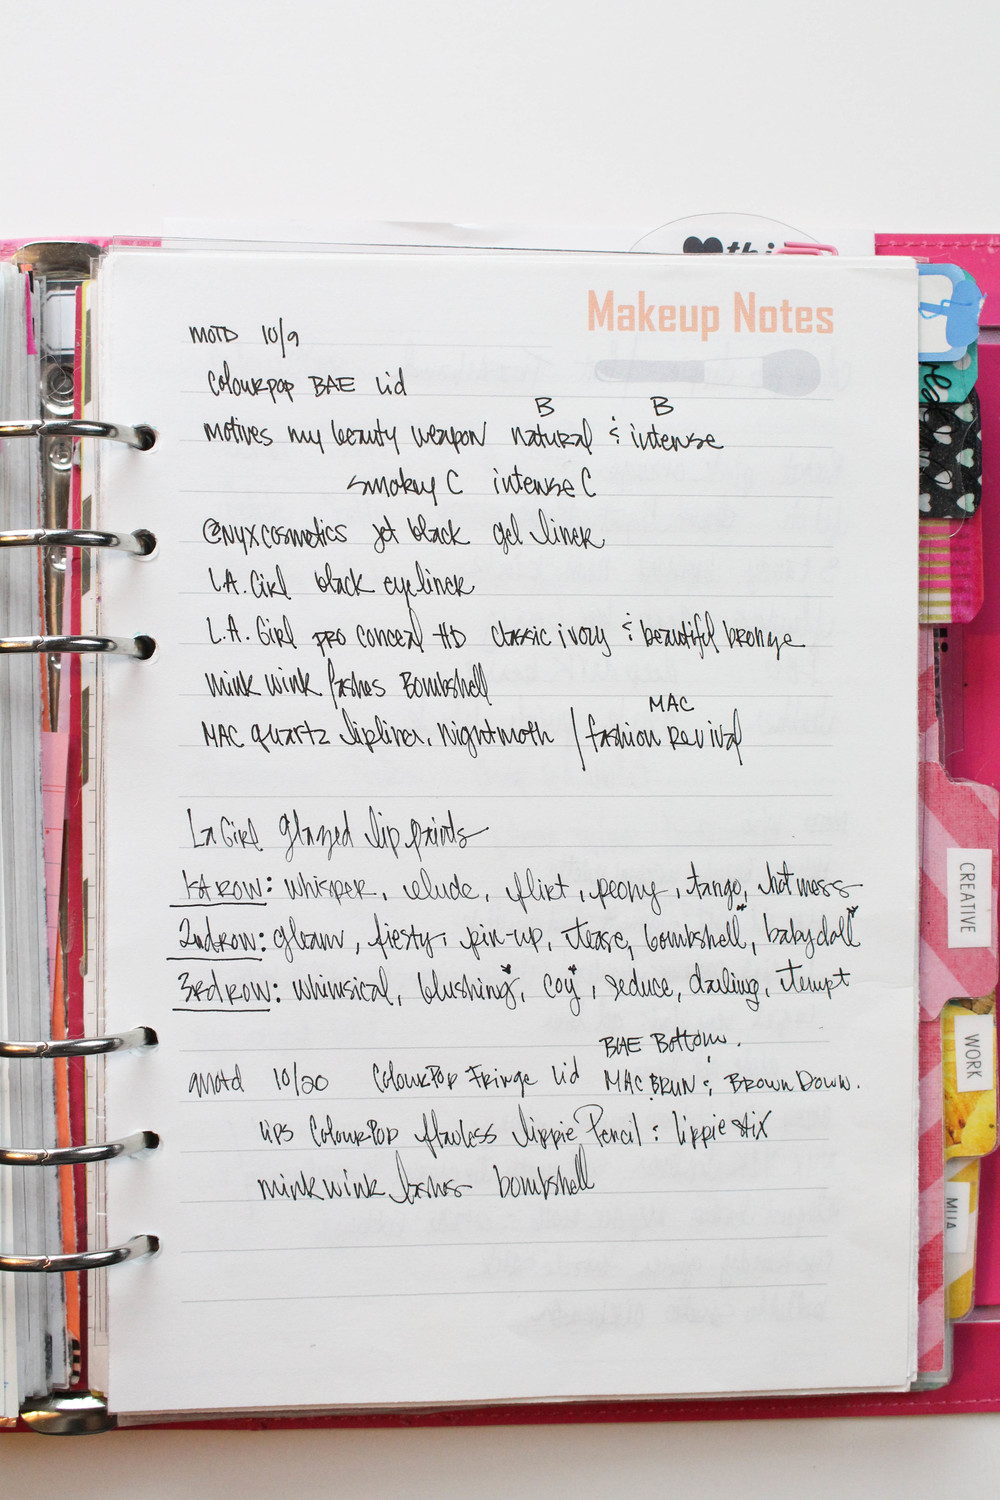 thi
Makeup Notes
MOTD 10/9
Colourpop BAE lid
B B
motives my beauty weapon natural & intense
smokey C intense C
@NYXCosmetics jet black gel liner
L.A. Girl black eyeliner
L.A. Girl PRO Conceal HD classic ivory & beautiful bronze
mink wink lashes Bombshell
MAC
MAC quartz lipliner, Nightmoth / fashion Revival
LA Girl glazed lip paints
1st ROW: whisper, elude, flirt, peony, tango, hot mess
2nd ROW: gleam, fiesty, pin-up, tease, bombshell, babydoll
3rd ROW: whimsical, blushing, coy, seduce, darling, tempt
BAE Bottom.
motd 10/20 ColourPop Fringe lid MAC BRUN & BROWN DOWN.
lips ColourPop flawless lippie Pencil & lippie stix
mink wink lashes bombshell
CREATIVE
WORK